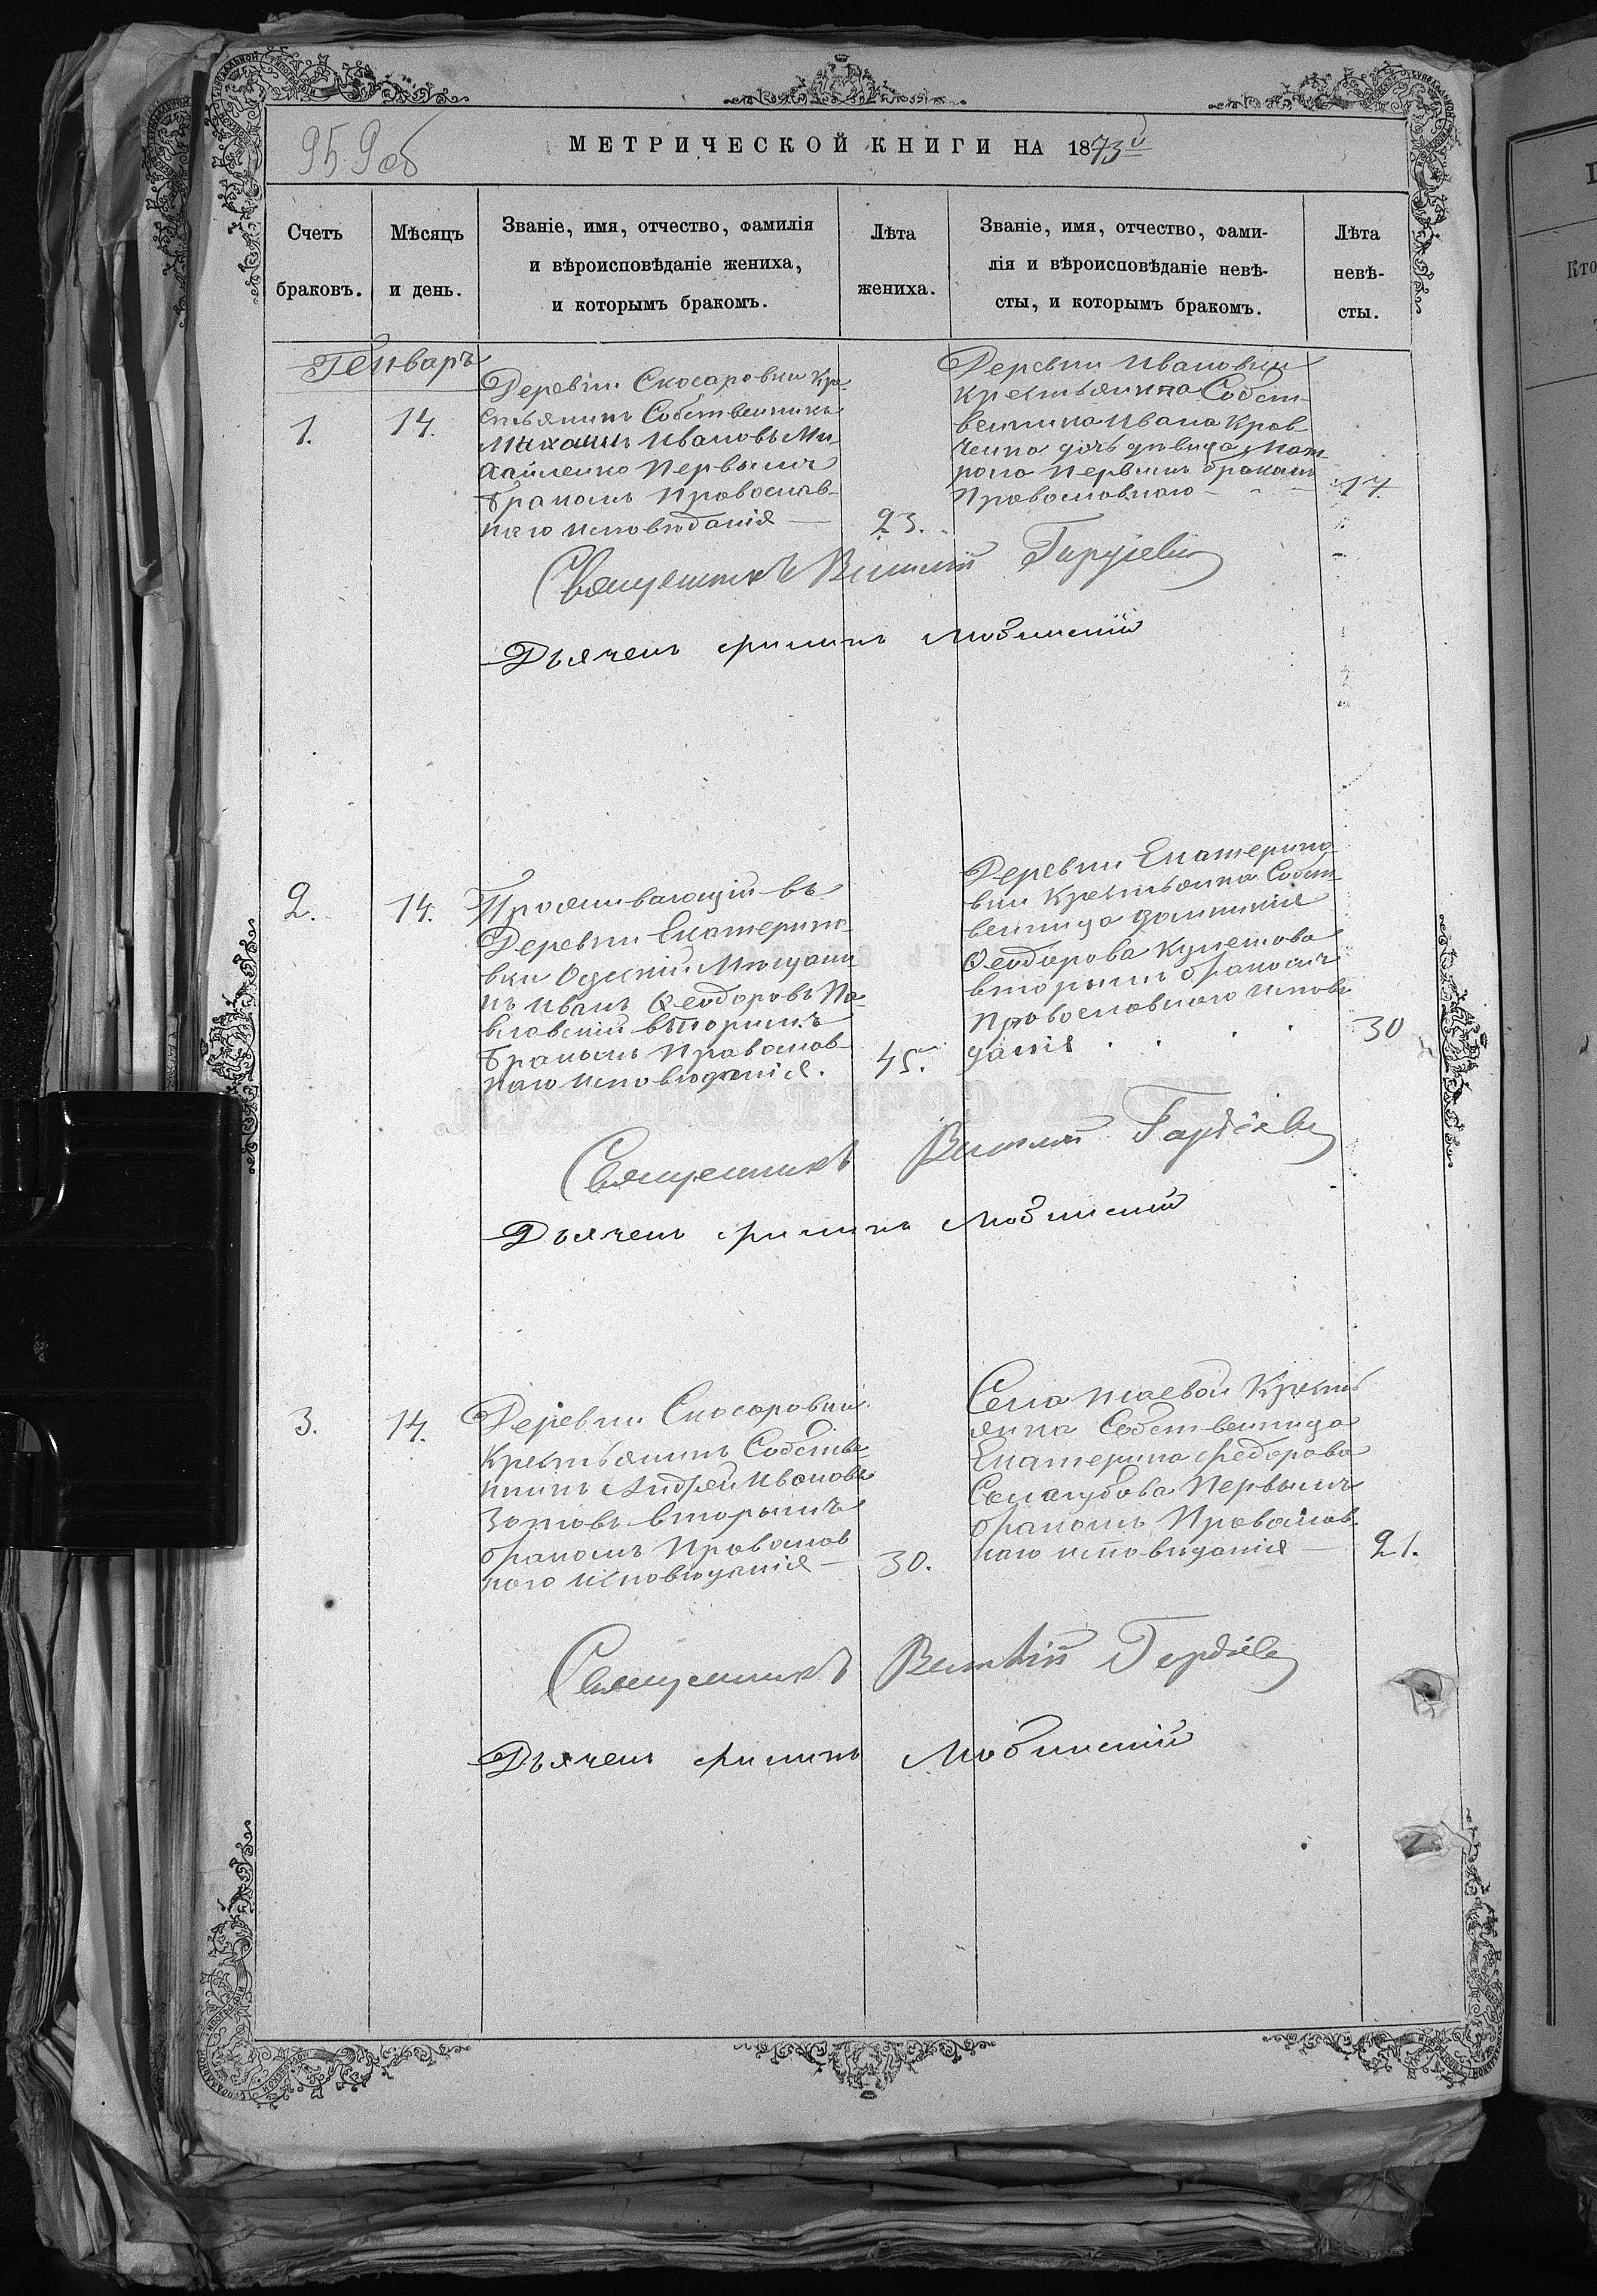 959 об
МЕТРИЧЕСКОЙ КНИГИ НА 1873й
Счетъ браковъ.
Мѣсяцъ и день.
Званіе, имя, отчество, фамилія
и вѣроисповѣданіе жениха,
и которымъ бракомъ.
Лѣта жениха.
Званіе, имя, отчество, фами-
лія и вѣроисповѣданіе невѣ-
сты, и которымъ бракомъ.
Лѣта невѣ-
сты.
Генварь
1.
14.
Деревни Скосаровки Кре-
стьянинъ Собственникъ
Михаилъ Ивановъ Ми-
хайленко первымъ
бракомъ православ-
наго исповѣданія —
23.
Деревни Ивановки
крестьянина Собст-
венника Ивана Крав-
ченка дочь дѣвица Мат-
рона первымъ бракомъ
Православнаго -
17.
Священникъ Виталій
Дьячекъ Филипъ Любинскій
2.
14.
Проживающій въ
Деревни Екатерино-
вки Одескій Мѣщани-
нъ Иванъ Ѳеодоровъ Па-
вловскій вторымъ
бракомъ Православ-
наго исповѣданія.
45.
Деревни Екатерино-
вки Крестьянка Собст-
венница Домникія
Ѳеодорова Кулешова
вторымъ бракомъ
Православнаго исповѣ-
данія . . . .
30
Священникъ Виталій Гордіев
Дьячекъ Филипъ Любинскій
3.
14.
Деревни Скосаровки
Крестьянинъ Собстве-
нникъ Андрей Ивановъ
Зотовъ вторымъ
бракомъ Православ
наго исповѣданія —
30.
Села Исаевой Кресть
янка Собственница
Екатерина Федорова
Самагубова Первымъ
бракомъ Православ-
наго исповѣданія —
21.
Священникъ Виталій Гордіев
Дьячекъ Филипъ Любинскій
Кто